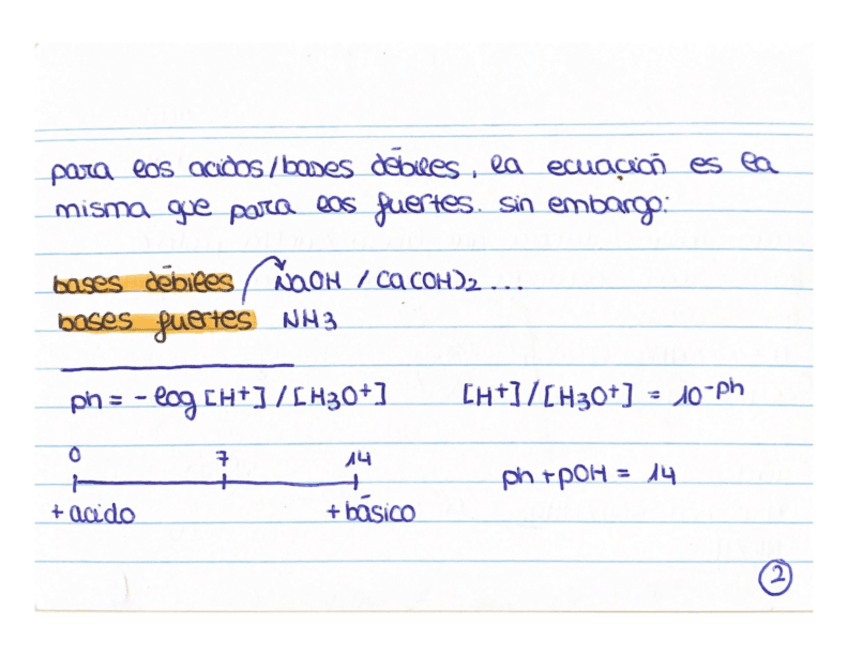 para los acidos/bases débiles, la ecuación es la
misma que para los fuertes. sin embargo:
bases débiles NaOH / Ca(OH)2 ...
bases fuertes NH3
ph = - log [H+] / [H3O+] [H+]/[H3O+] = 10-ph
0 7 14
ph + pOH = 14
+ acido + básico
2